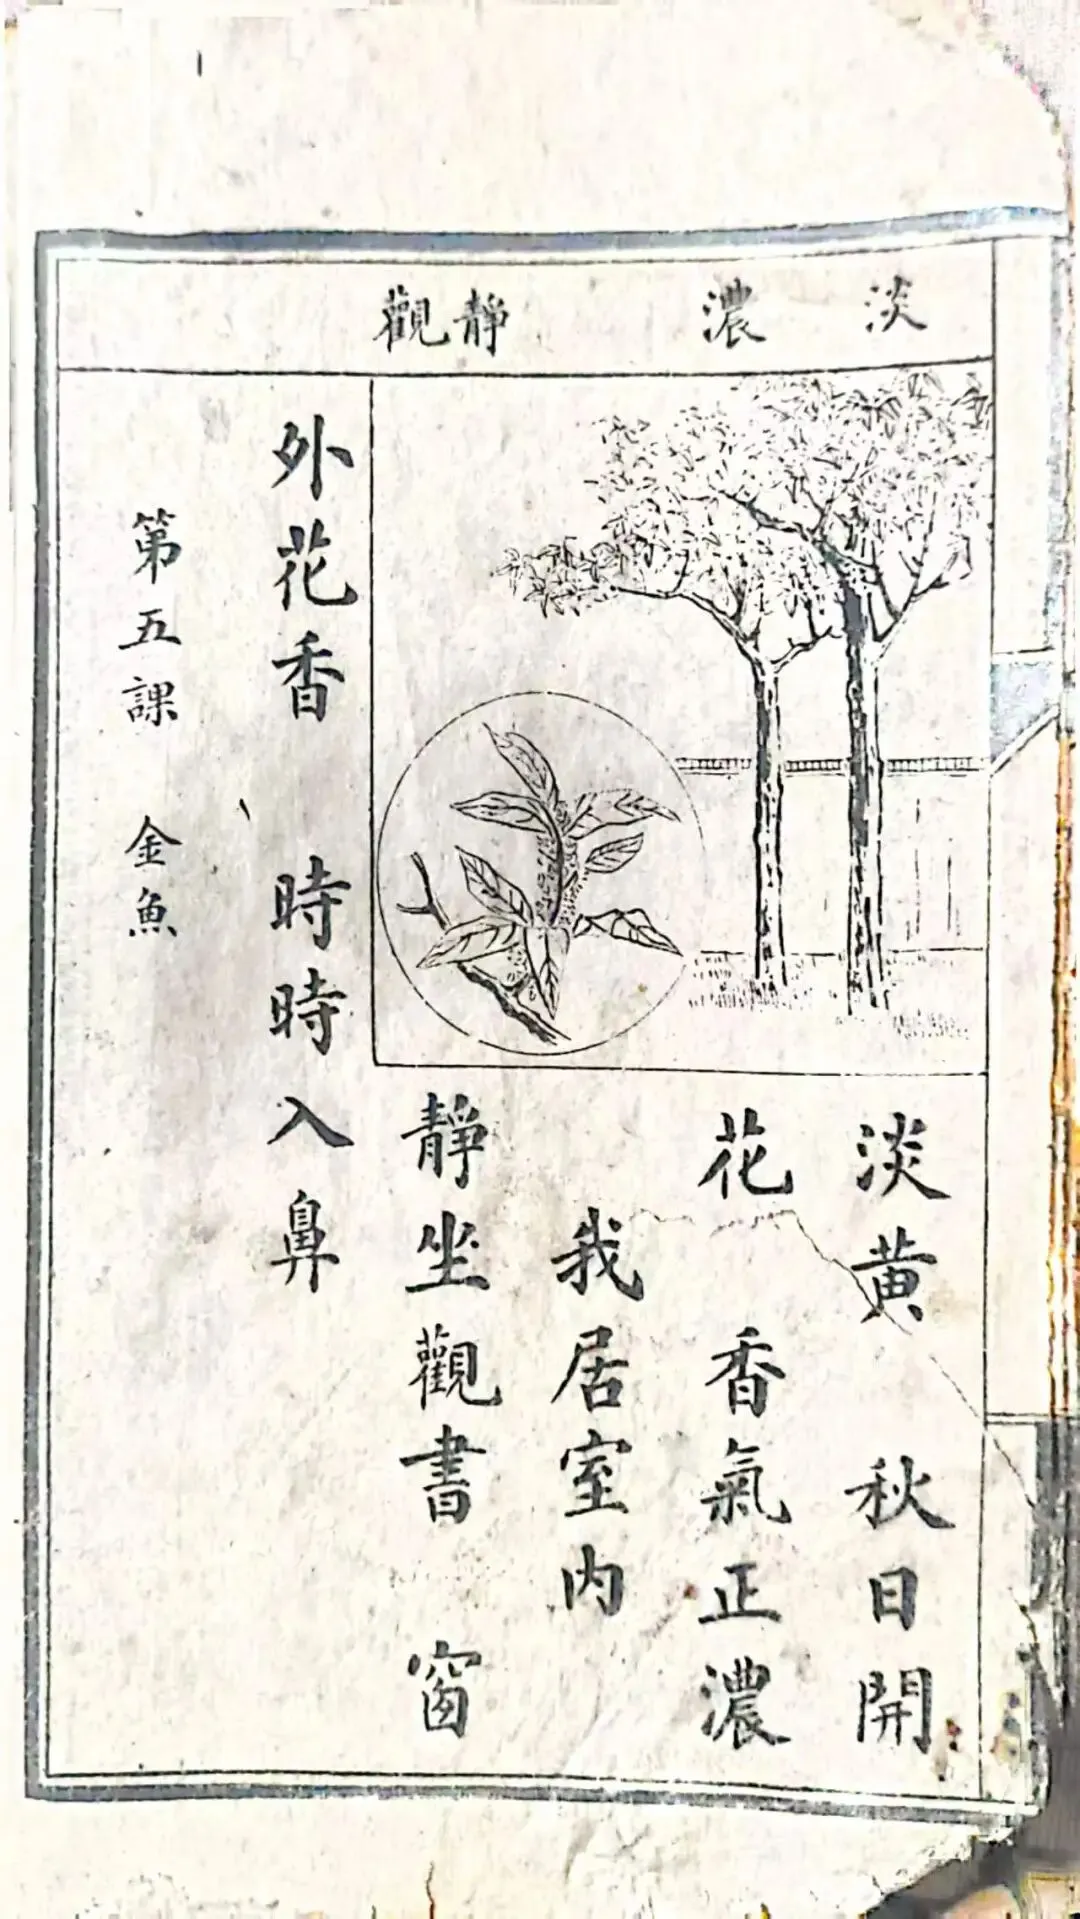 淡
濃
靜觀
淡黃　秋日開
花　香氣正濃
我居室内
靜坐觀書　窗
外花香　時時入鼻
第五課　金魚